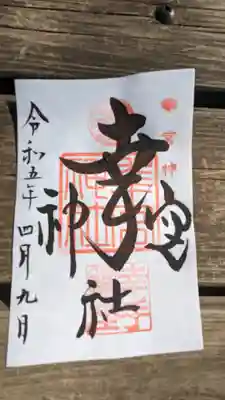 幸宮
神社
令和五年 四月九日